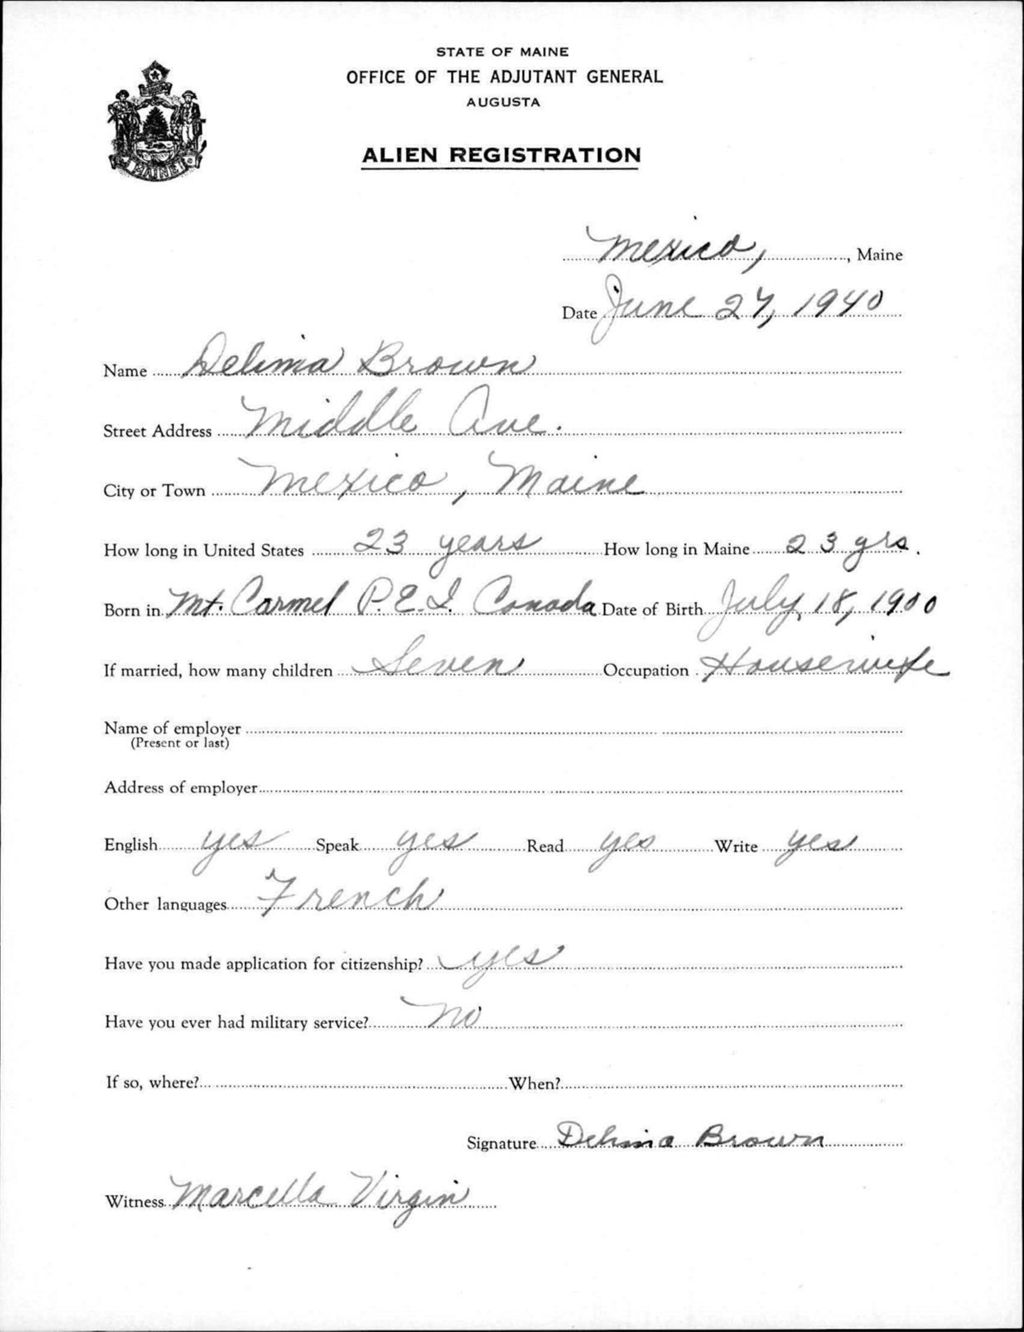 STATE OF MAINE
OFFICE OF THE ADJUTANT GENERAL
AUGUSTA
ALIEN REGISTRATION
MAINE
Mexico, , Maine
Date June 27, 1940
Name Delima Brown
Street Address Middle Ave.
City or Town Mexico, Maine
How long in United States 23 years How long in Maine 23 yrs.
Born in Mt. Carmel P.E.I. Canada Date of Birth July 18, 1900
If married, how many children Seven Occupation Housewife
Name of employer
(Present or last)
Address of employer
English yes Speak yes Read yes Write yes
Other languages French
Have you made application for citizenship? yes
Have you ever had military service? no
If so, where? When?
Signature Delima Brown
Witness Marcella Virgin